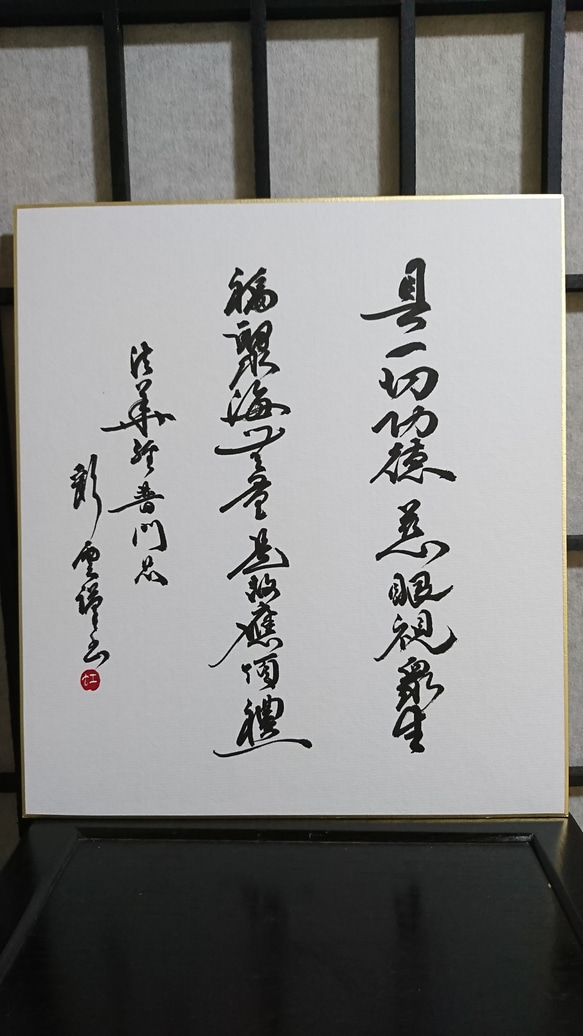 具一切功徳慈眼視衆生
福聚海無量是故應頂禮
法華経普門品
彩雲謹書